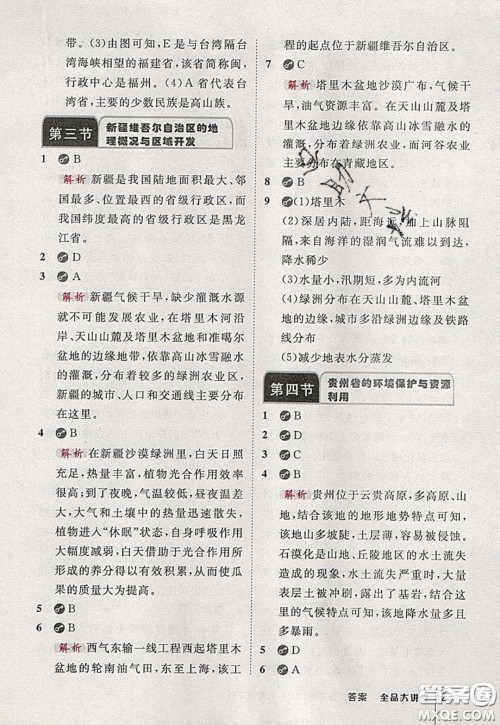 带。(3)由图可知，E是与台湾隔台湾海峡相望的福建省，该省简称闽，
行政中心是福州。(4)A省代表台湾省，主要的少数民族是高山族。
第三节
新疆维吾尔自治区的地
理概况与区域开发
1 B
解析 新疆是我国陆地面积最大、邻
国最多、国境线最长的省级行政区，而
我国纬度最高的省级行政区是黑龙
江省。
2 D
3 A
解析 新疆气候干旱，缺少灌溉水源
就不可能发展农业，在塔里木河沿
岸、天山山麓及塔里木盆地和准噶尔
盆地的边缘地带，依靠高山冰雪融水
的灌溉，分布着较多绿洲农业区，新
疆的城市、人口和交通线主要分布
于此。
4 B
解析 在新疆沙漠绿洲里，白天日照
充足，热量丰富，植物光合作用效率
高；到了夜晚，植物光合作用基本停
止，大气和土壤中的热量迅速散失，
气温明显下降，植物的叶和茎便处于
一种“休眠”状态，自身呼吸作用所消
耗大幅减弱，白天借助于光合作用所
形成的养分得以有效积累，从而使瓜
果的质量大为提高。
5 B
6 B
解析 西气东输一线工程西起塔里木
盆地的轮南油气田，东到上海，该工
程的起点位于新疆维吾尔自治区。
7 C
解析 塔里木盆地沙漠广布，气候干
旱，油气资源丰富。在天山山麓及塔
里木盆地的边缘，依靠高山冰雪融水
的灌溉，发展绿洲农业，而河谷农业
主要分布在青藏地区。
8 B
9 (1)塔里木
(2)深居内陆，距海遥远，加上山脉阻
隔，来自海洋的湿润气流难以到达，
降水稀少
(3)水量小，汛期短，多为内流河
(4)绿洲分布在天山山麓及塔里木盆
地的边缘，城市多沿绿洲及铁路线
分布
(5)减少地表水分蒸发
第四节
贵州省的环境保护与资源
利用
1 B
2 D
3 B
4 B
解析 贵州位于云贵高原，多高山、
高原，故该地的地形地势特点可表现
该地山多坡陡；山区怪石嶙峋，表现
石漠化是山区、丘陵地区的水土流失
现象；水土流失严重、土层变薄、岩石
露出了该地岩石广布；天无三日晴体
现出的气候特点可知，该地降水量多
且多暴雨。
5 D
6 A
答案 全品大讲
答案圈
MXQE.COM